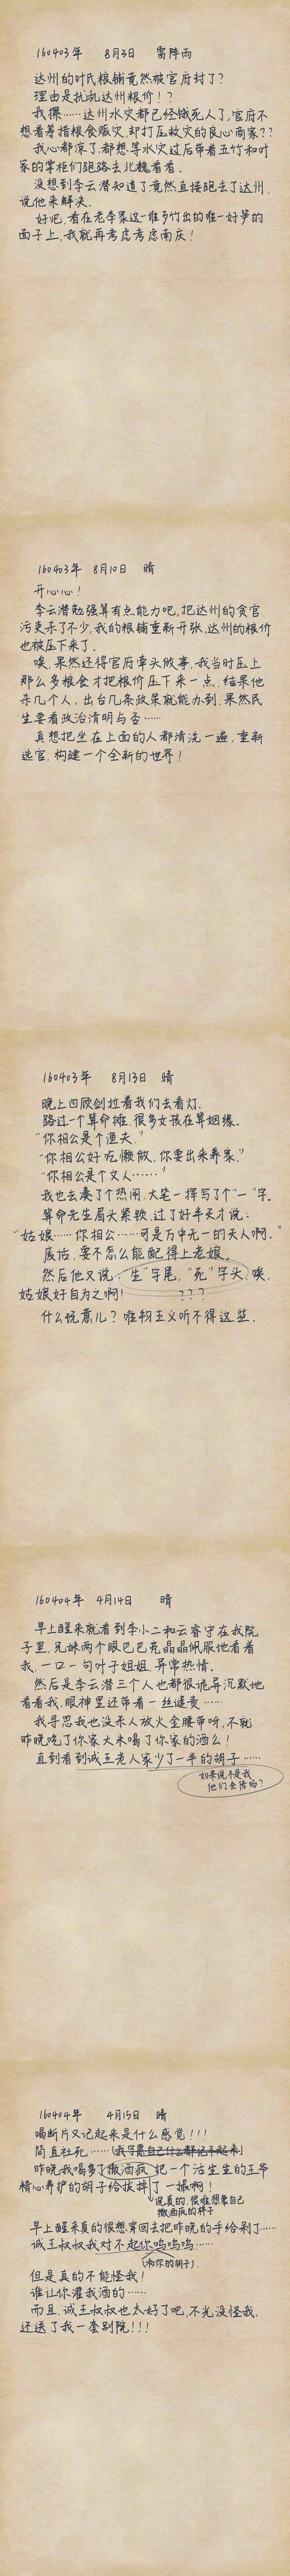 160403年 8月3日 雷阵雨
达州的叶氏粮铺竟然被官府封了？
理由是扰乱达州粮价！？
我操……达州水灾都已经饿死人了，官府不
想着筹措粮食赈灾，却打压救灾的良心商家？？
我心都凉了，都想等水灾过后带着五竹和叶
家的掌柜们跑路去北魏看看．
没想到李云潜知道了竟然直接跑去了达州，
说他来解决．
好吧，看在老李家这一堆歹竹出的唯一好笋的
面子上，我就再考虑考虑南庆！
160403年 8月10日 晴
开心心！
李云潜勉强算有点能力吧，把达州的贪官
污吏杀了不少，我的粮铺重新开张，达州的粮价
也被压下来了．
唉，果然还得官府牵头做事，我当时压上
那么多粮食才把粮价压下来一点，结果他
杀几个人，出台几条政策就能办到，果然民
生要看政治清明与否……
真想把坐在上面的人都清洗一遍，重新
选官，构建一个全新的世界！
160403年 8月13日 晴
晚上四顾剑拉着我们去看灯．
路过一个算命摊，很多女孩在算姻缘．
“你相公是个渔夫．”
“你相公好吃懒做，你要出来养家．”
“你相公是个文人……”
我也去凑了个热闹，大笔一挥写了个“一”字．
算命先生眉头紧皱，过了好半天才说：
“姑娘……你相公……可是万中无一的天人啊．”
废话，要不怎么能配得上老娘．
然后他又说：“生”字尾，“死”字头，唉，
姑娘好自为之啊！ ？？？
什么玩意儿？唯物主义听不得这些．
160404年 4月14日 晴
早上醒来就看到李小二和云睿守在我院
子里，兄妹两个眼巴巴亮晶晶佩服地看着
我，一口一句叶子姐姐，异常热情．
然后是李云潜三个人也都很诡异沉默地
看着我，眼神里还带着一丝谴责……
我寻思我也没杀人放火金腰带呀，不就
昨晚吃了你家大米喝了你家的酒么！
直到看到诚王老人家少了一半的胡子……
如果说不是我
他们会信吗？
160404年 4月15日 晴
喝断片又记起来是什么感觉！！！
简直社死……（我宁愿自己什么都记不起来）
昨晚我喝多了撒酒疯，把一个活生生的王爷
精心养护的胡子给拔掉了一撮啊！
说真的，很难想象自己
撒酒疯的样子
早上醒来真的很想穿回去把昨晚的手给剁了……
诚王叔叔我对不起你呜呜呜……
（和你的胡子）．
但是真的不能怪我！
谁让你灌我酒的……
而且，诚王叔叔也太好了吧，不光没怪我，
还送了我一套别院！！！